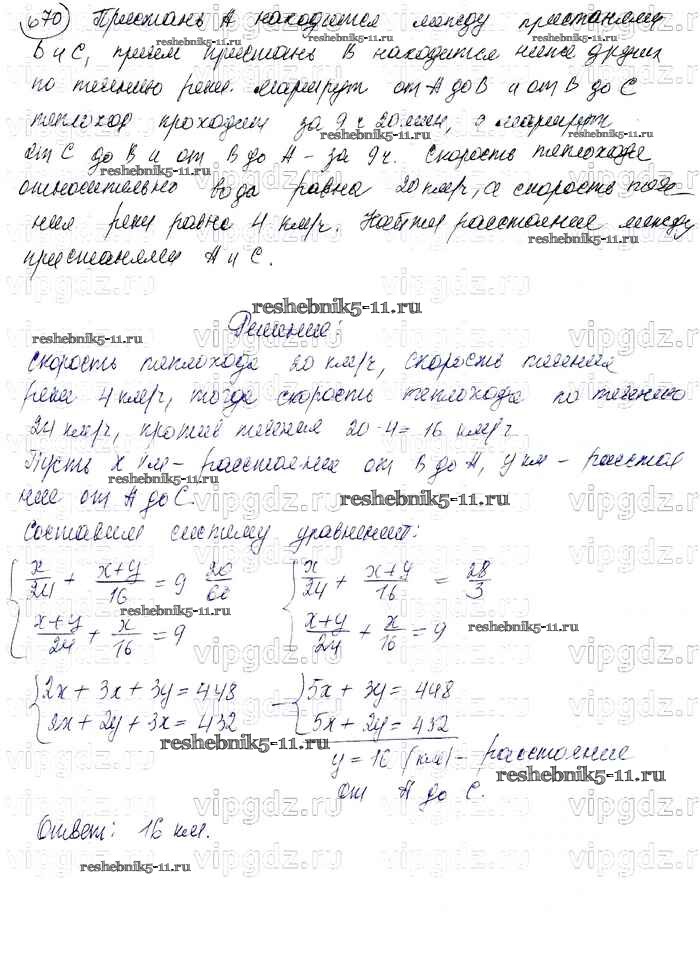 670) Пристань А находится между пристанями
В и С, причем пристань В находится ниже других
по течению реки. Маршрут от А до В и от В до С
теплоход проходит за 9 ч 20 мин, а маршрут
от С до В и от В до А – за 9 ч. Скорость теплохода
относительно вода равна 20 км/ч, а скорость тече–
ния реки равна 4 км/ч. Найти расстояние между
пристанями А и С.
Решение:
Скорость теплохода 20 км/ч, скорость течения
реки 4 км/ч, тогда скорость теплохода по течению
24 км/ч, против течения 20-4= 16 км/ч
Пусть х км – расстояние от В до А, у км – расстоя
ние от А до С.
Составим систему уравнений:
{ x/24 + (x+y)/16 = 9 20/60 { x/24 + (x+y)/16 = 28/3
(x+y)/24 + x/16 = 9 (x+y)/24 + x/16 = 9
{ 2x + 3x + 3y = 448 – { 5x + 3y = 448
2x + 2y + 3x = 432 5x + 2y = 432
y = 16 (км) – расстояние
от А до С.
Ответ: 16 км.
reshebnik5-11.ru
vipgdz.ru